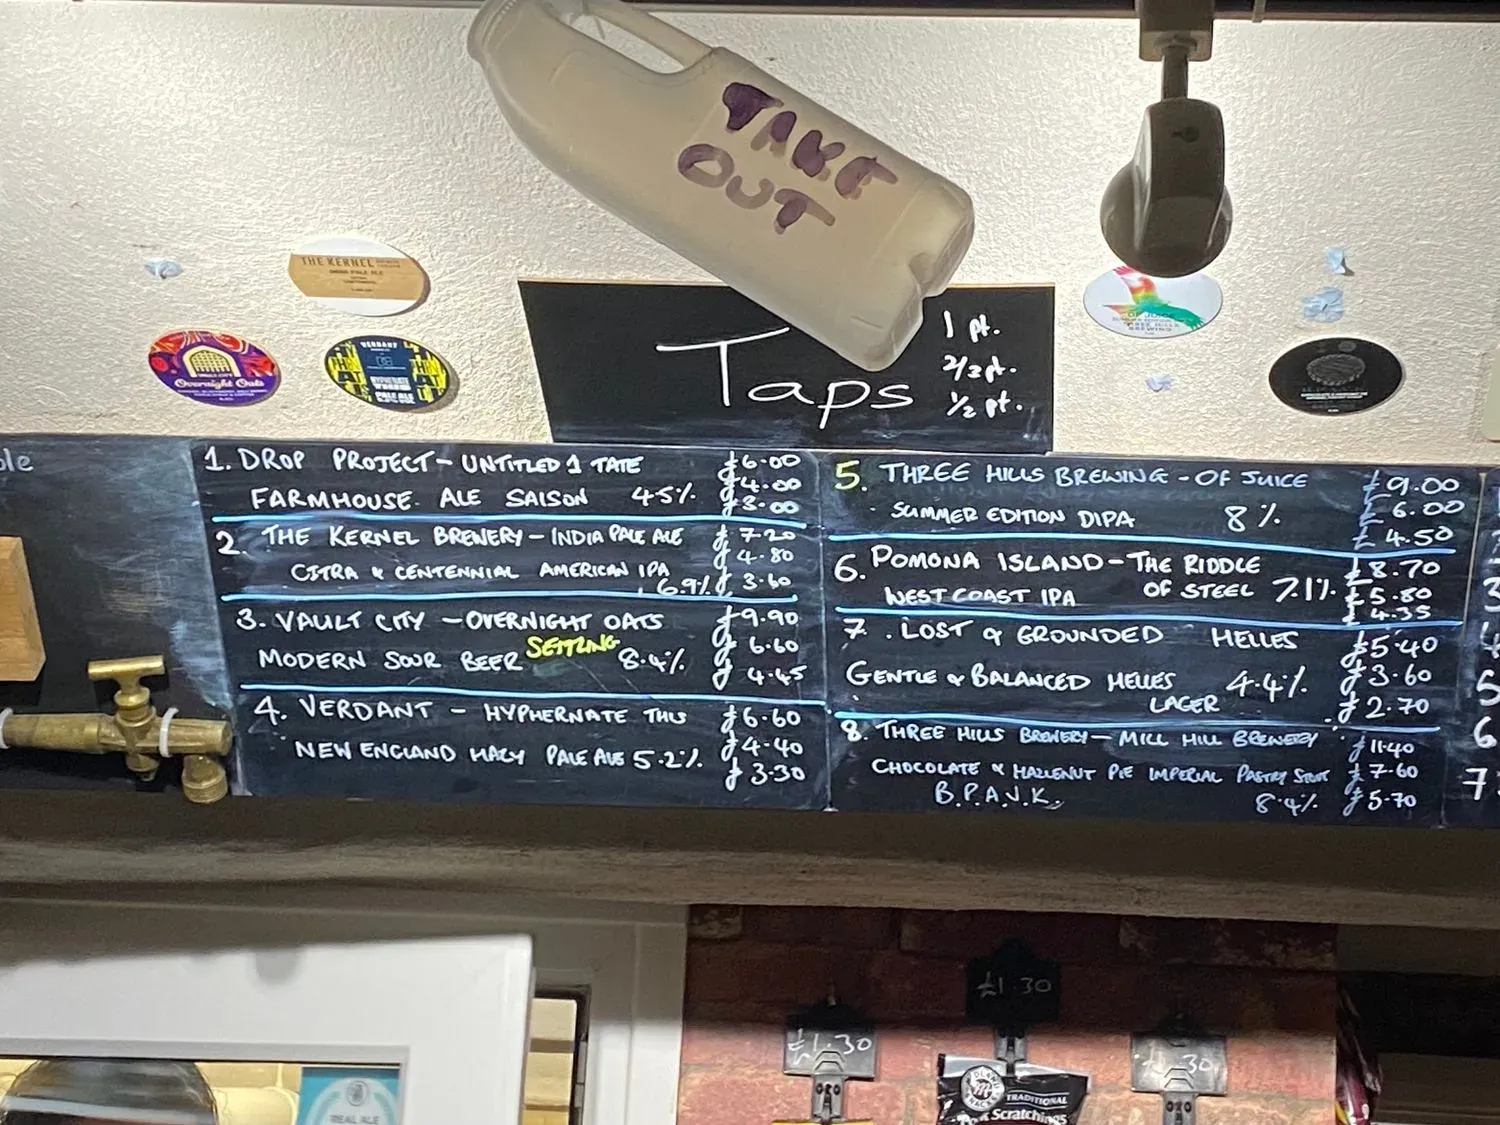 TAKE
OUT
THE KERNEL
INDIA PALE ALE
VAULT CITY
Overnight Oats
VERDANT
HYPHERNATE
THIS
PALE ALE
OF JUICE
THREE HILLS
BREWING
Taps
1 pt.
2/3 pt.
1/2 pt.
1. DROP PROJECT - UNTITLED 1 TATE £6.00
FARMHOUSE ALE SAISON 4.5% £4.00
£3.00
2. THE KERNEL BREWERY - INDIA PALE ALE £7.20
CITRA & CENTENNIAL AMERICAN IPA £4.80
6.9% £3.60
3. VAULT CITY - OVERNIGHT OATS £9.90
MODERN SOUR BEER SETTLING 8.4% £6.60
£4.45
4. VERDANT - HYPHERNATE THIS £6.60
NEW ENGLAND HAZY PALE ALE 5.2% £4.40
£3.30
5. THREE HILLS BREWING - OF JUICE £9.00
SUMMER EDITION DIPA 8% £6.00
£4.50
6. POMONA ISLAND - THE RIDDLE £8.70
WEST COAST IPA OF STEEL 7.1% £5.80
£4.35
7. LOST & GROUNDED HELLES £5.40
GENTLE & BALANCED HELLES 4.4% £3.60
LAGER £2.70
8. THREE HILLS BREWERY - MILL HILL BREWERY £11.40
CHOCOLATE & HAZLENUT PIE IMPERIAL PASTRY STOUT £7.60
B.P.A.V.K. 8.4% £5.70
5
6
7
£1.30
£1.30
£1.30
TRADITIONAL
Scratchings
REAL ALE